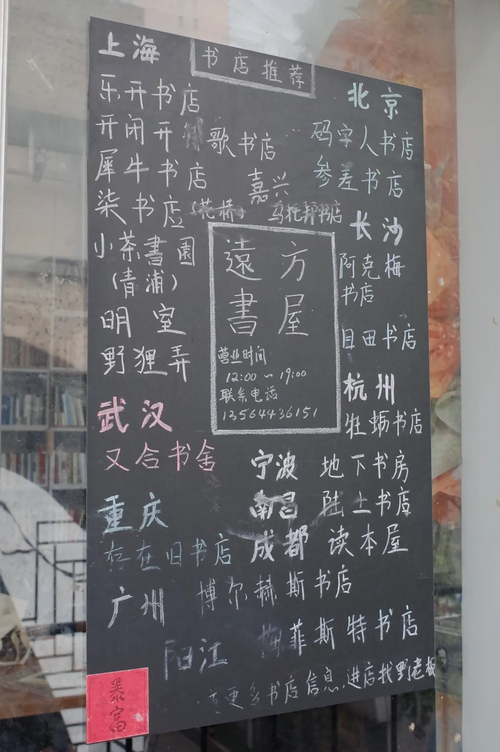 书店推荐
上海
乐开书店
开闭开
歌书店
犀牛书店
柒书店
(花桥)
小茶書園
(青浦)
明室
野狸弄
嘉兴
乌托邦书店
北京
码字人书店
参差书店
长沙
阿克梅
书店
目田书店
遠方
書屋
营业时间
12:00 ~ 19:00
联系电话
13564436151
杭州
牡蛎书店
武汉
又合书舍
宁波 地下书房
南昌 陆上书店
成都 读本屋
重庆
存在旧书店
广州 博尔赫斯书店
阳江 梅菲斯特书店
更多书店信息,进店找野老板
暴富